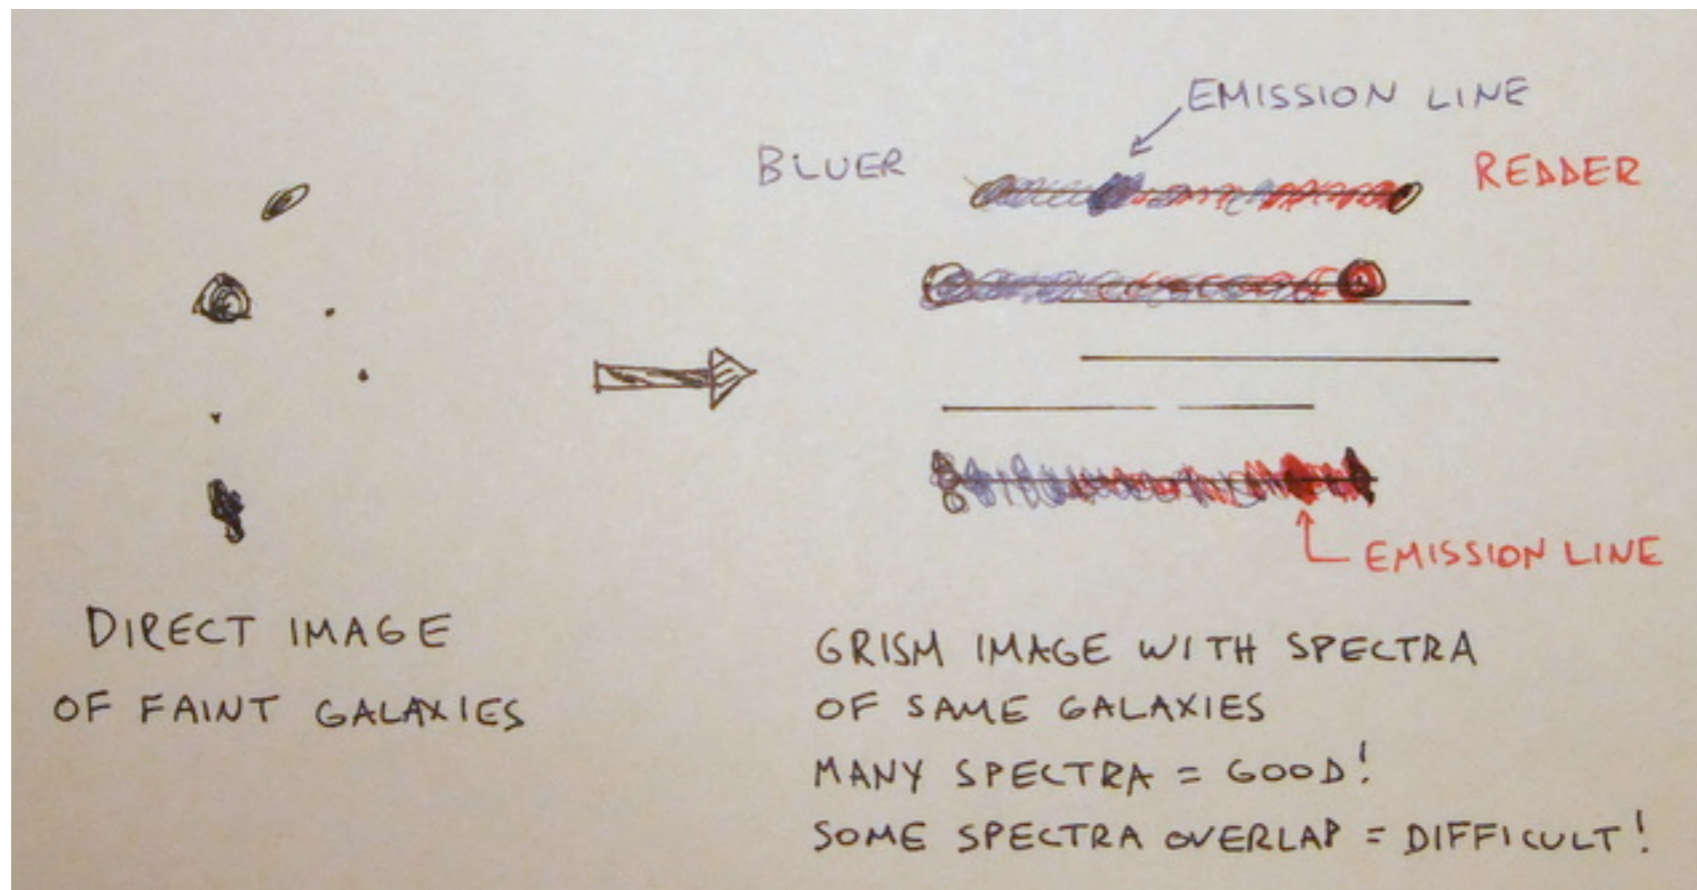 EMISSION LINE
BLUER
REDDER
EMISSION LINE
DIRECT IMAGE
OF FAINT GALAXIES
GRISM IMAGE WITH SPECTRA
OF SAME GALAXIES
MANY SPECTRA = GOOD!
SOME SPECTRA OVERLAP = DIFFICULT!